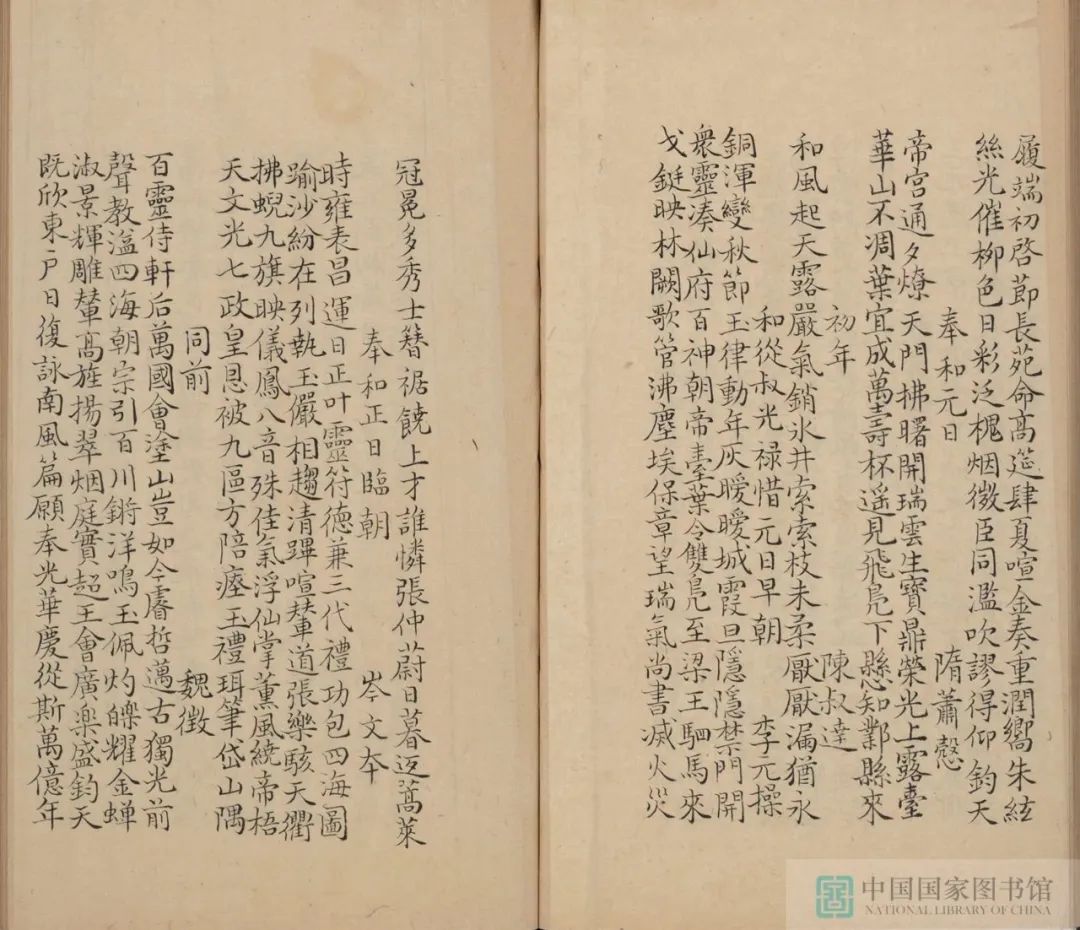 履端初啓節長苑命高筵肆夏喧金奏重潤嚮朱絃
絲光催柳色日彩泛槐烟微臣同濫吹謬得仰鈞天
奉和元日 隋蕭慤
帝宮通夕燎天門拂曙開瑞雲生寶鼎榮光上露臺
華山不凋葉宜成萬壽杯遥見飛鳧下懸知鄴縣來
初年 陳叔達
和風起天露嚴氣銷氷井索索枝未柔厭厭漏猶永
和從叔光禄愔元日早朝 李元操
銅渾變秋節玉律動年灰曖曖城霞旦隱隱禁門開
衆靈湊仙府百神朝帝臺葉令雙鳧至梁王駟馬來
戈鋋映林闕歌管沸塵埃保章望瑞氣尚書滅火災
冠冕多秀士簪裾饒上才誰憐張仲蔚日暮返蒿萊
奉和正日臨朝 岑文本
時雍表昌運日正叶靈符德兼三代禮功包四海圖
踰沙紛在列執玉儼相趨清蹕喧輦道張樂駭天衢
拂蜺九旗映儀鳳八音殊佳氣浮仙掌薰風繞帝梧
天文光七政皇恩被九區方陪瘞玉禮珥筆岱山隅
同前 魏徵
百靈侍軒后萬國會塗山豈如今睿哲邁古獨光前
聲教溢四海朝宗引百川鏘洋鳴玉佩灼皪耀金蟬
淑景輝雕輦高旌揚翠烟庭實超王會廣樂盛鈞天
既欣東戸日復詠南風篇願奉光華慶從斯萬億年
中国国家图书馆
NATIONAL LIBRARY OF CHINA